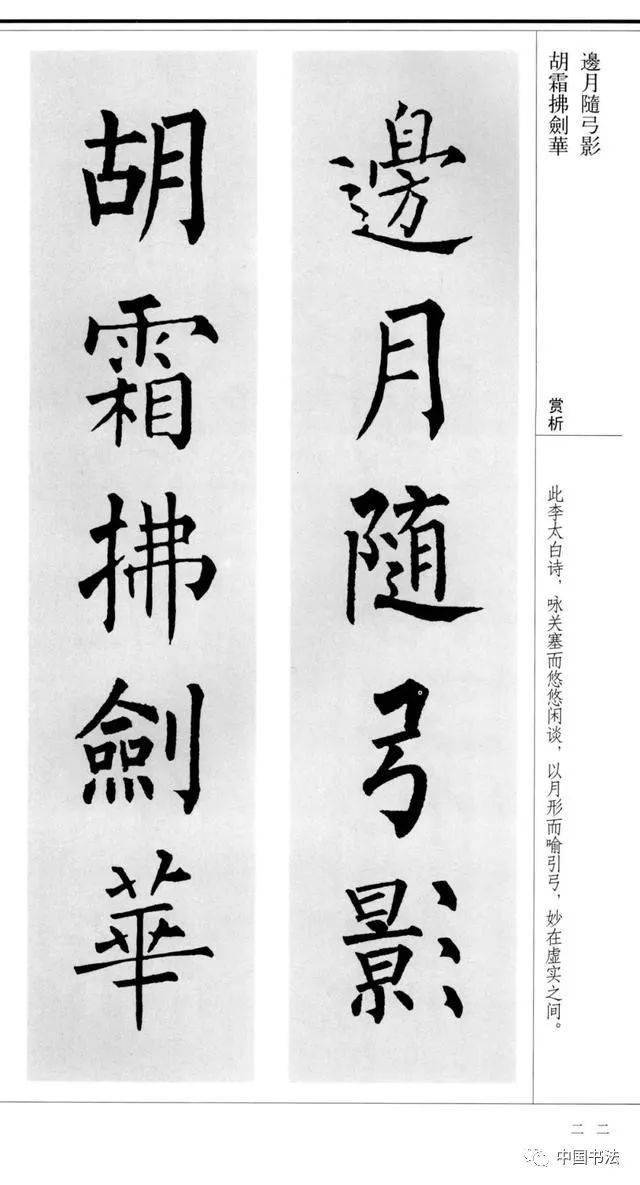 邊月隨弓影
胡霜拂劍華
赏析
此李太白诗，咏关塞而悠悠闲谈，以月形而喻引弓，妙在虚实之间。
邊月随弓影
胡霜拂劍華
二二
中国书法